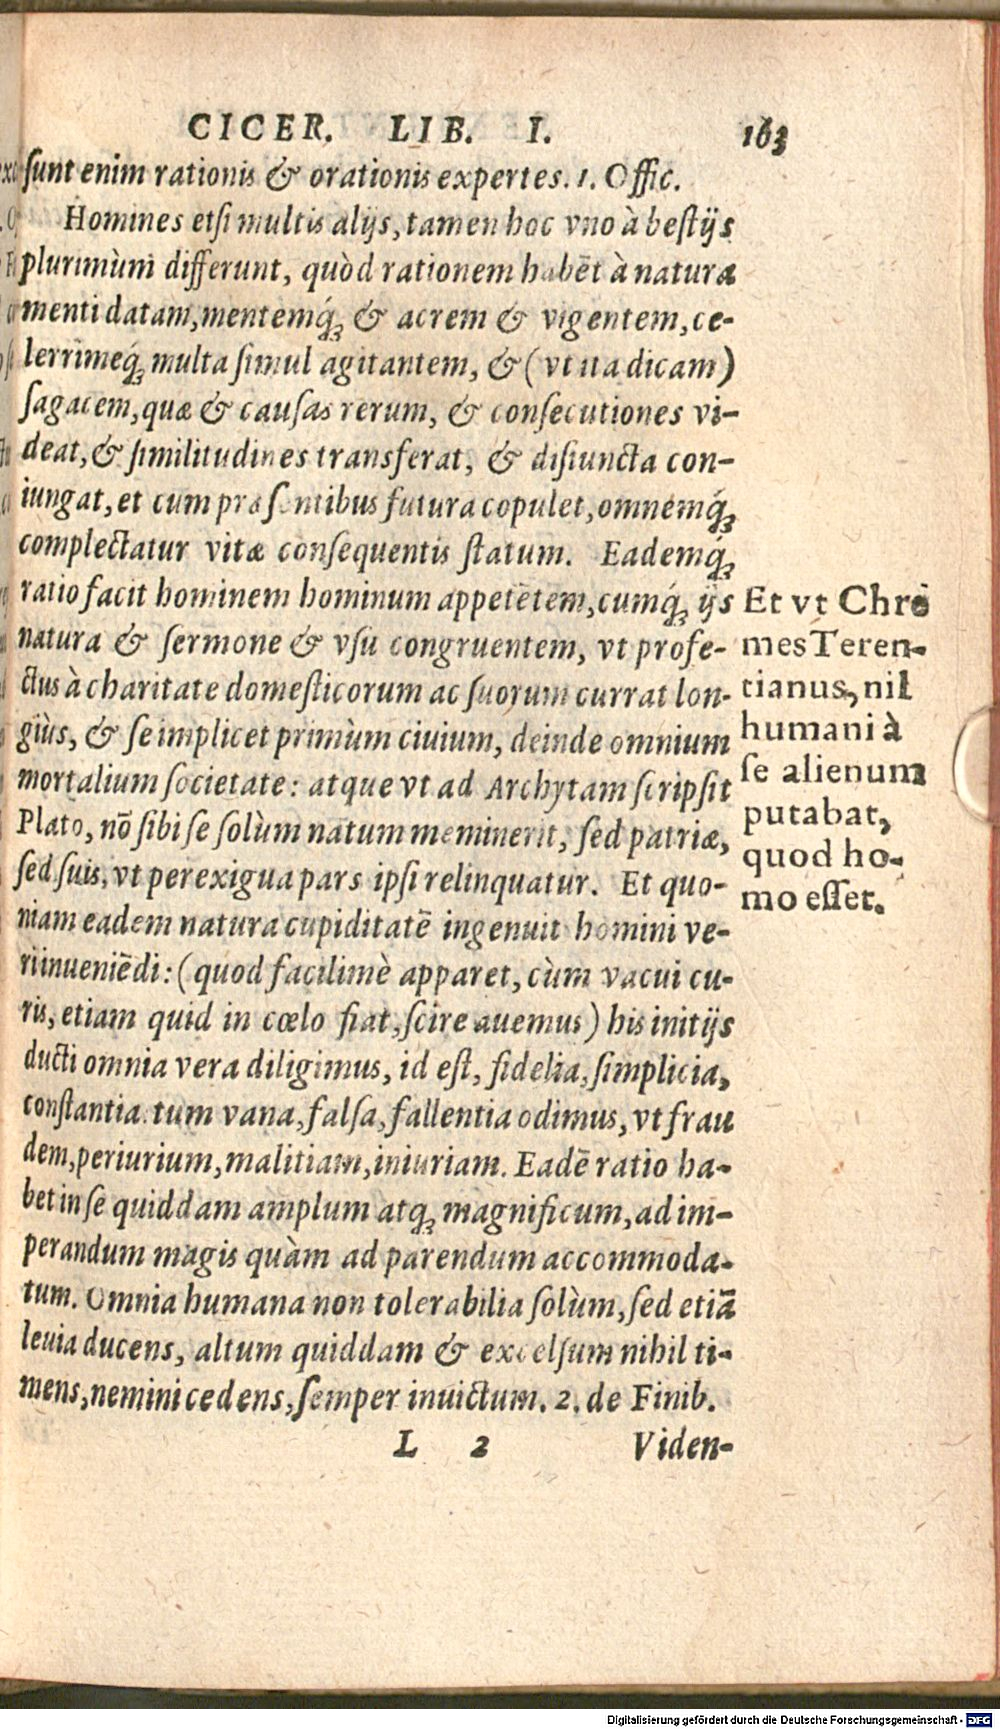 CICER. LIB. I. 163
sunt enim rationis & orationis expertes. 1. Offic.
Homines etsi multis alijs, tamen hoc vno à bestijs
plurimùm differunt, quòd rationem habēt à natura
menti datam, mentemq́; & acrem & vigentem, ce-
lerrimeq́; multa simul agitantem, & (vt ita dicam)
sagacem, quæ & causas rerum, & consecutiones vi-
deat, & similitudines transferat, & disiuncta con-
iungat, et cum præsentibus futura copulet, omnemq́;
complectatur vitæ consequentis statum. Eademq́;
ratio facit hominem hominum appetētem, cumq́; ijs
natura & sermone & vsu congruentem, vt profe-
ctus à charitate domesticorum ac suorum currat lon-
giùs, & se implicet primùm ciuium, deinde omnium
mortalium societate: atque vt ad Archytam scripsit
Plato, nō sibi se solùm natum meminerit, sed patriæ,
sed suis, vt perexigua pars ipsi relinquatur. Et quo-
niam eadem natura cupiditatē ingenuit homini ve-
ri inueniēdi: (quod facilimè apparet, cùm vacui cu-
ris, etiam quid in cœlo fiat, scire auemus) his initijs
ducti omnia vera diligimus, id est, fidelia, simplicia,
constantia. tum vana, falsa, fallentia odimus, vt frau
dem, periurium, malitiam, iniuriam. Eadē ratio ha-
bet in se quiddam amplum atq; magnificum, ad im-
perandum magis quàm ad parendum accommoda-
tum. Omnia humana non tolerabilia solùm, sed etiā
leuia ducens, altum quiddam & excelsum nihil ti-
mens, nemini cedens, semper inuictum. 2. de Finib.
L 2 Viden-
Et vt Chre
mes Teren-
tianus, nil
humani à
se alienum
putabat,
quod ho-
mo esset.
Digitalisierung gefördert durch die Deutsche Forschungsgemeinschaft - DFG